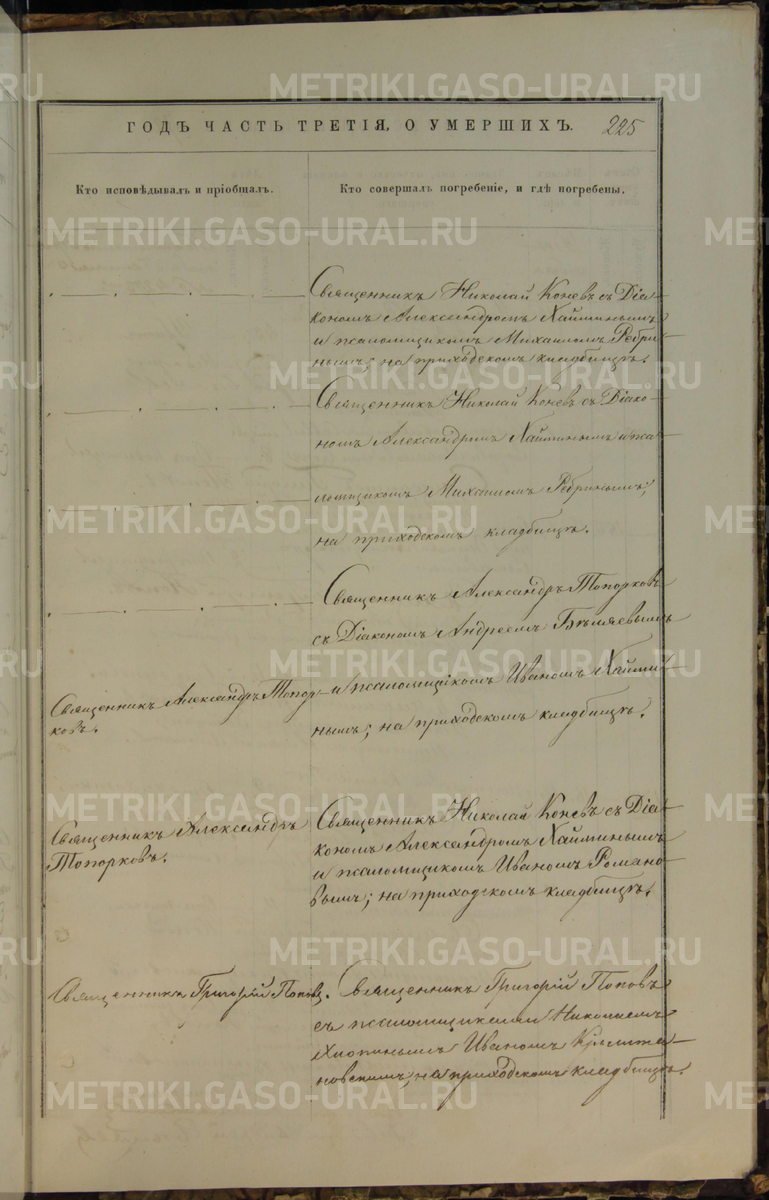 ГОДЪ ЧАСТЬ ТРЕТІЯ, О УМЕРШИХЪ. 225
Кто исповѣдывалъ и пріобщалъ.
Кто совершалъ погребеніе, и гдѣ погребены.
Священникъ Николай Коневъ съ Діа-
кономъ Александромъ Хайминымъ
и псаломщикомъ Михаиломъ Ребри-
нымъ; на приходскомъ кладбищѣ.
Священникъ Николай Коневъ съ Діако-
номъ Александромъ Хайминымъ и пса-
ломщикомъ Михаиломъ Ребринымъ;
на приходскомъ кладбищѣ.
Священникъ Александръ Топорковъ
съ Діакономъ Андреемъ Бѣляевымъ
и псаломщикомъ Иваномъ Хайми-
нымъ; на приходскомъ кладбищѣ.
Священникъ Александръ Топор-
ковъ.
Священникъ Николай Коневъ съ Діа-
кономъ Александромъ Хайминымъ
и псаломщикомъ Иваномъ Романо-
вымъ; на приходскомъ кладбищѣ.
Священникъ Александръ
Топорковъ.
Священникъ Григорій Поповъ.
Священникъ Григорій Поповъ
съ псаломщиками Николаемъ
Хіопинымъ Иваномъ
на приходскомъ кладбищѣ.
METRIKI.GASO-URAL.RU